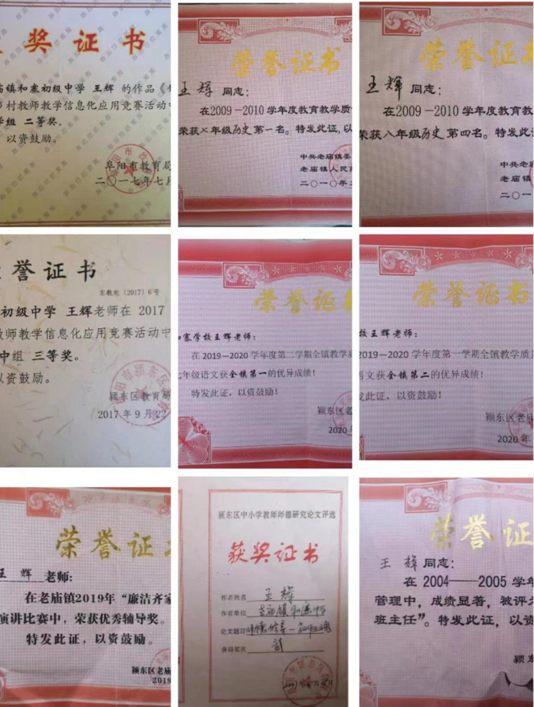 奖证书
庙镇和寨初级中学 王辉 的作品《
村教师教学信息化应用竞赛活动中
学组 二等奖。
以资鼓励。
阜阳市教育局
二〇一七年七月
荣誉证书
王辉 同志：
在2009-2010学年度教育教学质
荣获×年级历史第一名。特发此证，以
中共老庙镇委
老庙镇人民政
二〇一〇年
荣誉证书
王辉 同志：
在2009-2010学年度教育教
荣获八年级历史第四名。特发此证
中共老庙
老庙镇
二〇一
誉证书
东教秘〔2017〕6号
初级中学 王辉老师在 2017
教师教学信息化应用竞赛活动中
中组 三等奖。
以资鼓励。
颍东区教育局
2017年9月22
荣誉证书
寨学校王辉老师：
在2019-2020学年度第二学期全镇教学
七年级语文获全镇第一的优异成绩！
特发此证，以资鼓励！
颍东区老
2020
荣誉证书
校王辉老师：
2019-2020学年度第一学期全镇教学质
语文获全镇第二的优异成绩！
发此证，以资鼓励！
颍东区老
2020年
荣誉证
王 辉 老师：
在老庙镇2019年“廉洁齐家
演讲比赛中，荣获优秀辅导奖。
特发此证，以资鼓励。
颍东区老庙
2019
颍东区中小学教师师德研究论文评选
获奖证书
作者姓名 王辉
作者单位 老庙镇和寨中学
论文题目
获得奖次
荣誉证
王辉 同志：
在 2004——2005 学年
管理中，成绩显著，被评为
班主任”。特发此证，以资
颍东